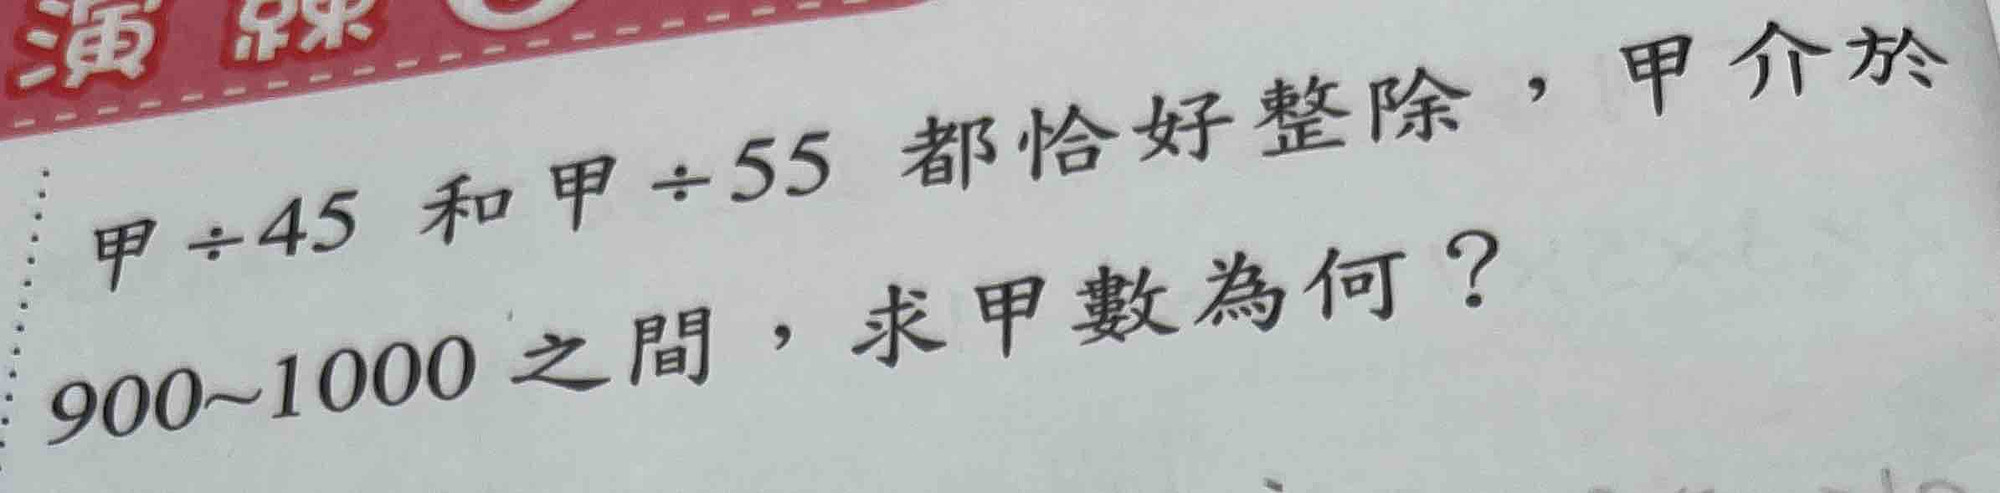 演練
甲÷45 和甲÷55 都恰好整除，甲介於
900~1000之間，求甲數為何？